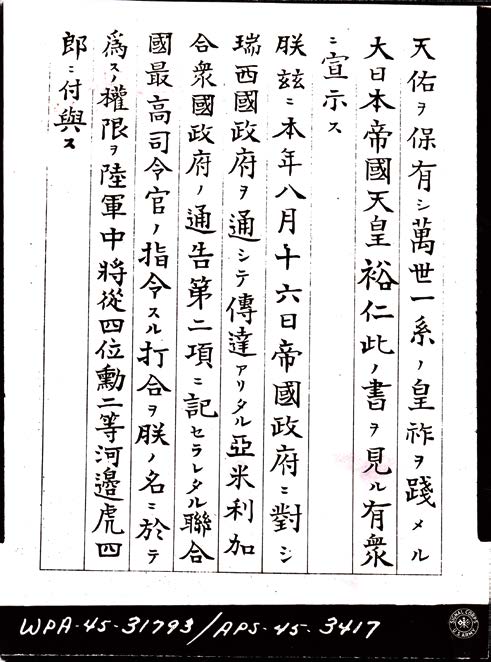 天佑ヲ保有シ萬世一系ノ皇祚ヲ踐メル
大日本帝國天皇裕仁此ノ書ヲ見ル有衆
ニ宣示ス
朕玆ニ本年八月十六日帝國政府ニ對シ
瑞西國政府ヲ通シテ傳達アリタル亞米利加
合衆國政府ノ通告第二項ニ記セラレタル聯合
國最高司令官ノ指令スル打合ヲ朕ノ名ニ於テ
爲スノ權限ヲ陸軍中將從四位勳二等河邊虎四
郎ニ付與ス
WPA-45-31793/APS-45-3417
SIGNAL CORPS
U.S. ARMY